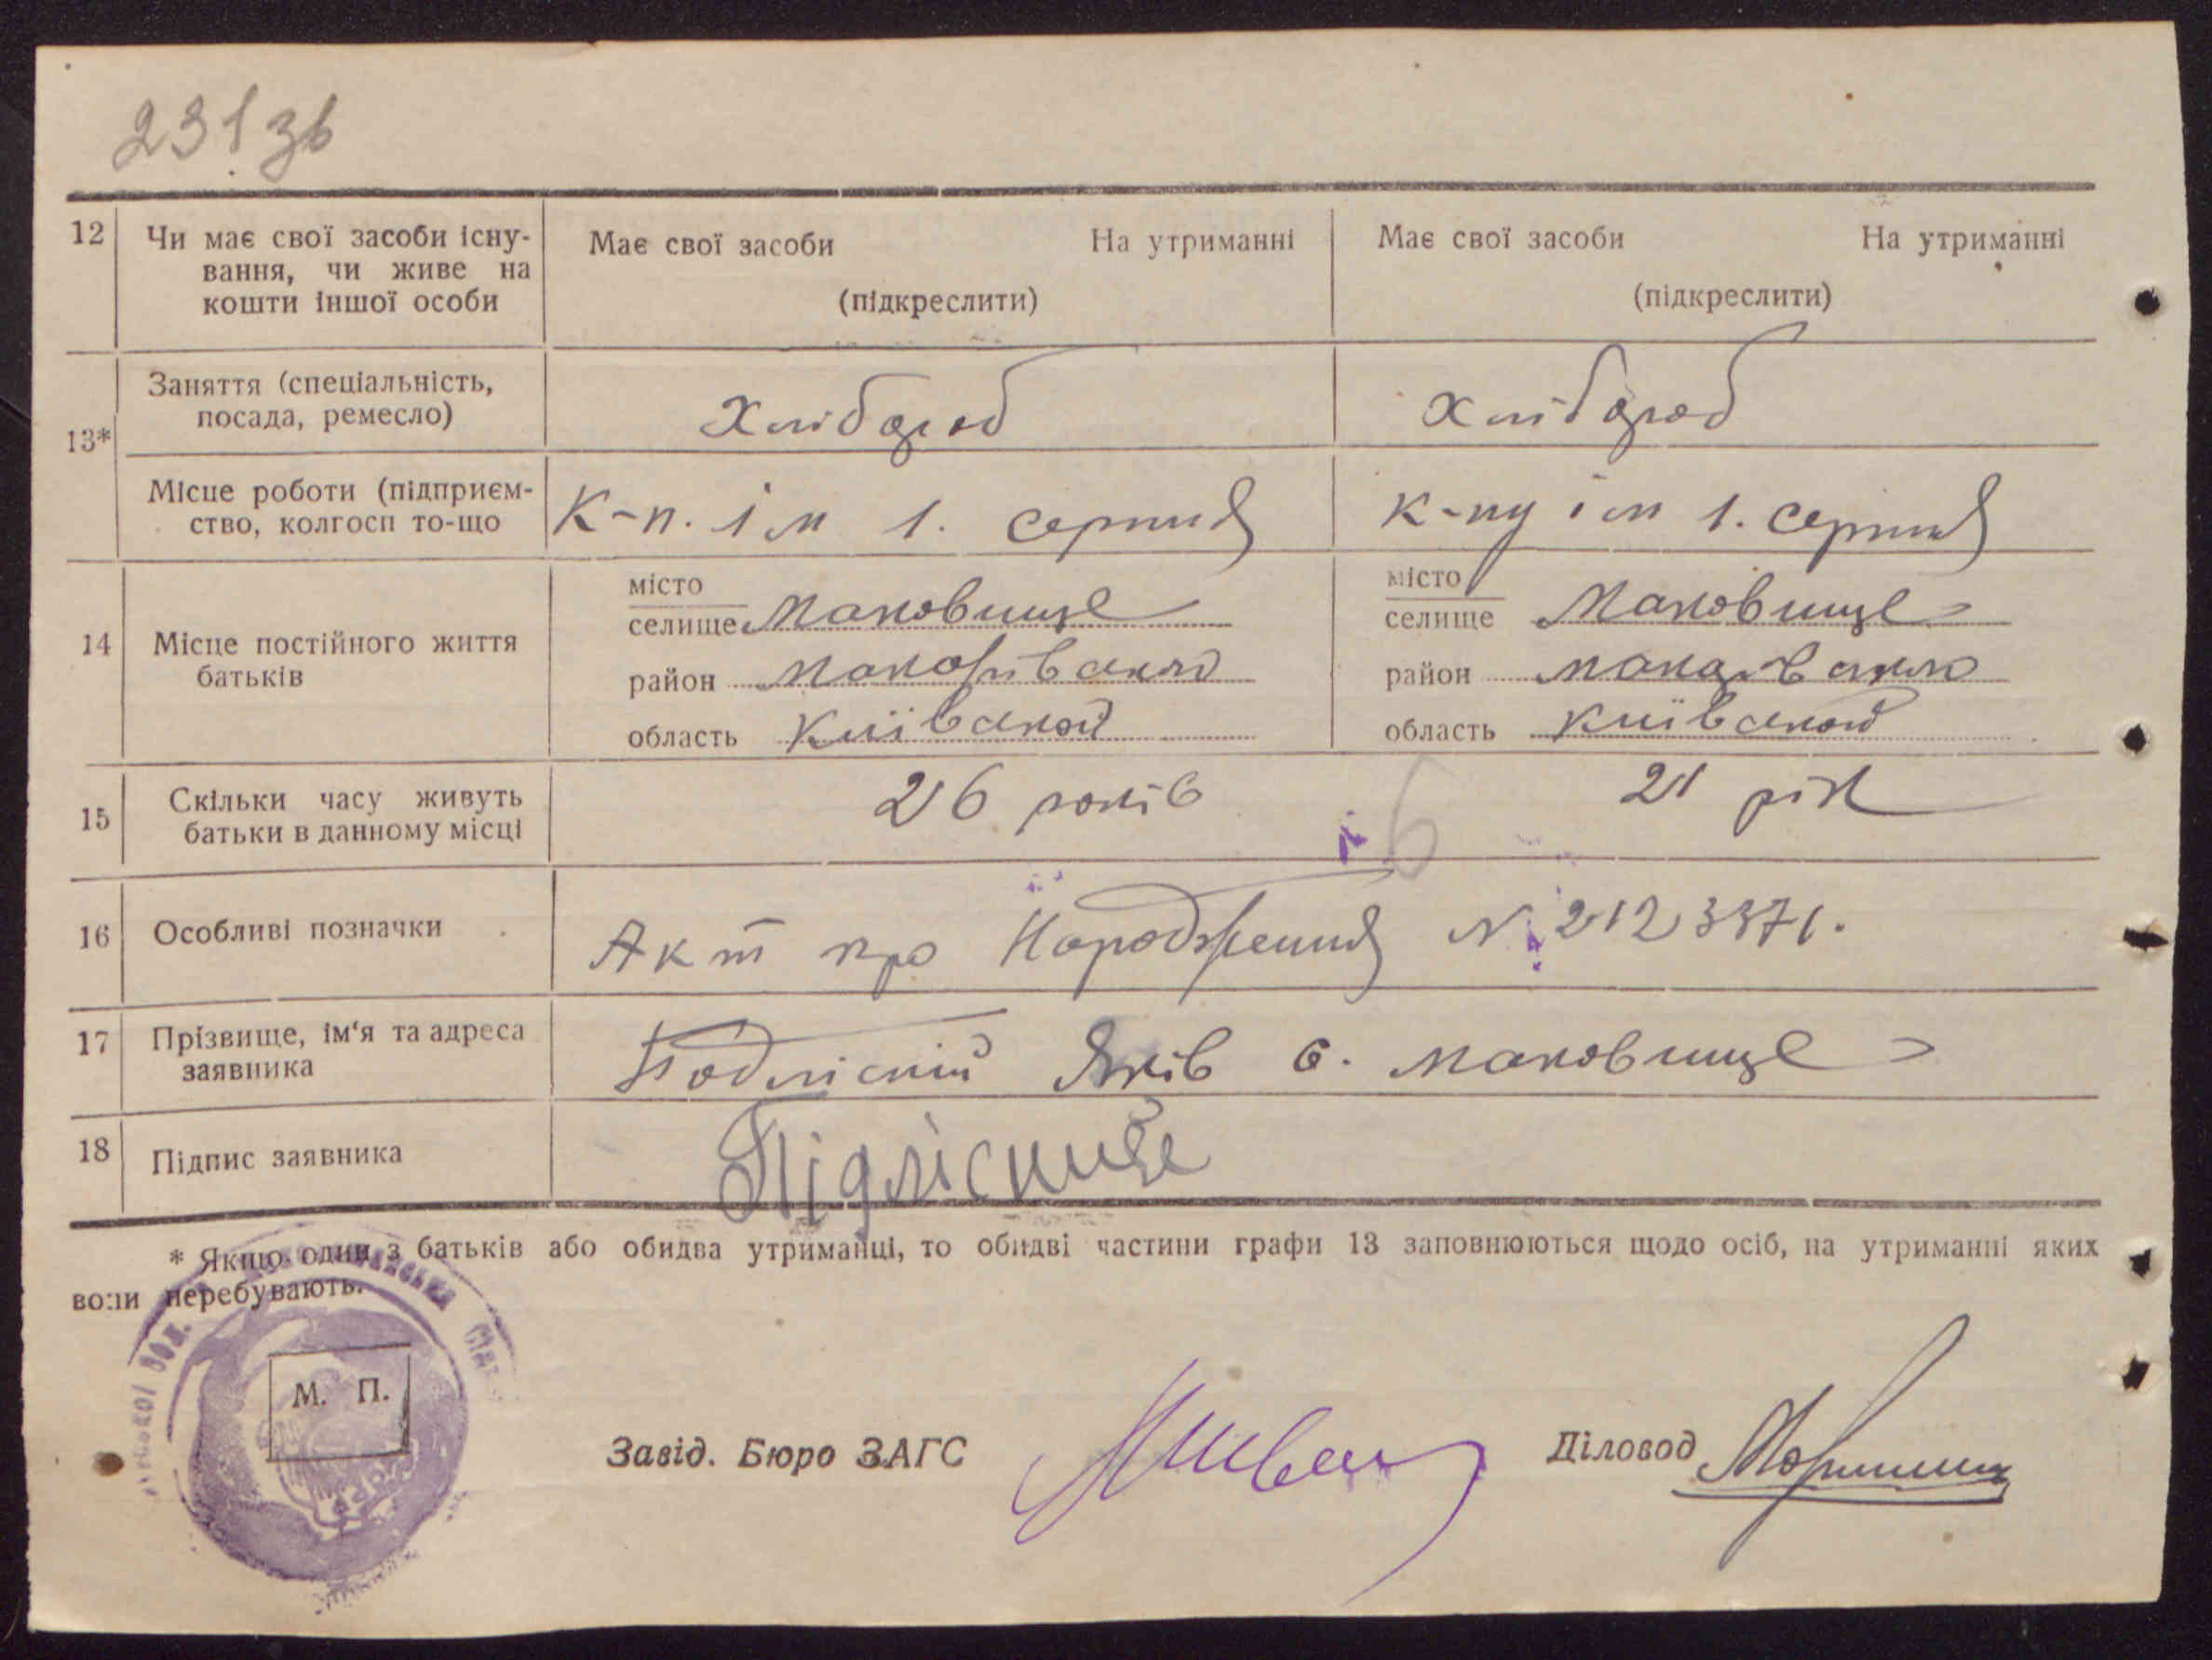 231 зв
12 Чи має свої засоби існу-
вання, чи живе на
кошти іншої особи
Має свої засоби На утриманні
(підкреслити)
Має свої засоби На утриманні
(підкреслити)
13*
Заняття (спеціальність,
посада, ремесло)
Хлібороб
Хлібороб
Місце роботи (підприєм-
ство, колгосп то-що
К-п. ім 1. серпня
К-пу ім 1. серпня
14 Місце постійного життя
батьків
місто
селище Маковище
район Макарівсько
область Київської
місто
селище Маковище
район Макарівсько
область Київської
15 Скільки часу живуть
батьки в данному місці
26 років
21 рік
16 Особливі позначки
Акт про Народження № 2123371.
17 Прізвище, ім'я та адреса
заявника
Подліский Яків с. Маковище
18 Підпис заявника
* Якщо один з батьків або обидва утриманці, то обидві частини графи 13 заповнюються щодо осіб, на утриманні яких
вони перебувають.
М. П.
Завід. Бюро ЗАГС
Діловод